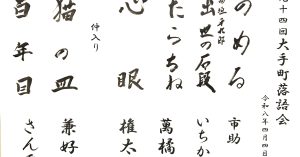 十四回大手町落語会
令和八年四月四日
のめる
市助
出世の石段
いちか
たらちね
萬橘
心眼
権太
仲入り
猫の皿
兼好
百年目
さん